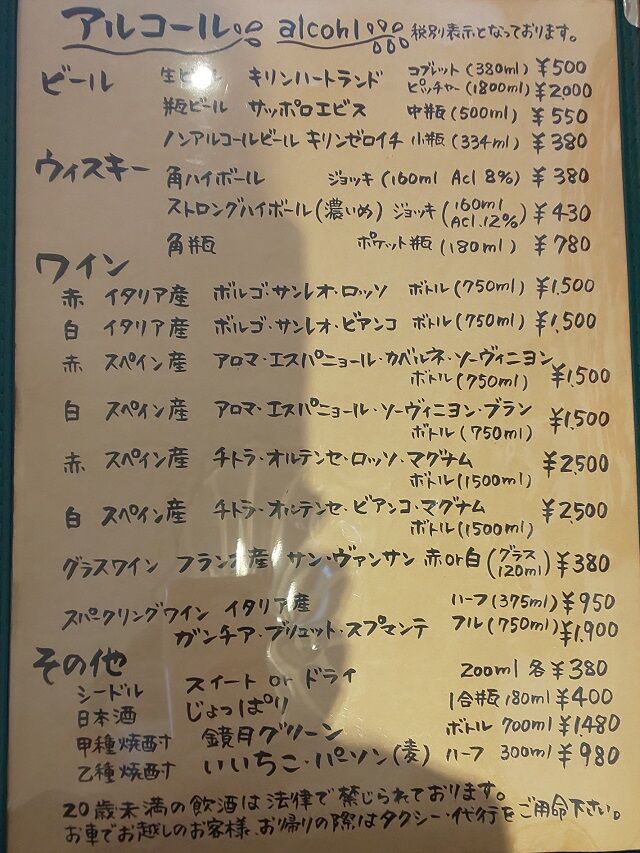 アルコール alcohl 税別表示となっております。
ビール 生ビール キリンハートランド ゴブレット(380ml) ¥500
ピッチャー(1800ml) ¥2,000
瓶ビール サッポロエビス 中瓶(500ml) ¥550
ノンアルコールビール キリンゼロイチ 小瓶(334ml) ¥380
ウィスキー 角ハイボール ジョッキ(160ml Acl 8%) ¥380
ストロングハイボール(濃いめ) ジョッキ(160ml Acl.12%) ¥430
角瓶 ポケット瓶(180ml) ¥780
ワイン
赤 イタリア産 ボルゴ・サンレオ・ロッソ ボトル(750ml) ¥1,500
白 イタリア産 ボルゴ・サンレオ・ビアンコ ボトル(750ml) ¥1,500
赤 スペイン産 アロマ・エスパニョール・カベルネ・ソーヴィニヨン
ボトル(750ml) ¥1,500
白 スペイン産 アロマ・エスパニョール・ソーヴィニヨン・ブラン
ボトル(750ml) ¥1,500
赤 スペイン産 チトラ・オルテンセ・ロッソ・マグナム ¥2,500
ボトル(1500ml)
白 スペイン産 チトラ・オルテンセ・ビアンコ・マグナム ¥2,500
ボトル(1500ml)
グラスワイン フランス産 サン・ヴァンサン 赤or白(グラス120ml) ¥380
スパークリングワイン イタリア産 ハーフ(375ml) ¥950
ガンチア・ブリュット・スプマンテ フル(750ml) ¥1,900
その他
シードル スイート or ドライ 200ml 各 ¥380
日本酒 じょっぱり 1合瓶 180ml ¥400
甲種焼酎 鏡月グリーン ボトル 700ml ¥1,480
乙種焼酎 いいちこ・パーソン(麦) ハーフ 300ml ¥980
20歳未満の飲酒は法律で禁じられております。
お車でお越しのお客様、お帰りの際はタクシー・代行をご用命下さい。